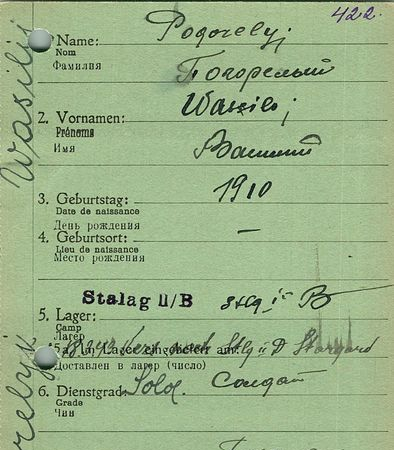 422.
Name: Pogorelyj
Nom
Фамилия Погорелый
2. Vornamen: Wassilij
Prénoms
Имя Василий
3. Geburtstag: 1910
Date de naissance
День рождения
4. Geburtsort: –
Lieu de naissance
Место рождения
Stalag II/B
5. Lager: Stlg II B
Camp
Лагерь
5a. In Lager eingeliefert am:
nach Stlg II D Stargard
Доставлен в лагерь (число)
6. Dienstgrad: Sold. Солдат
Grade
Чин
Wasilij
relyk